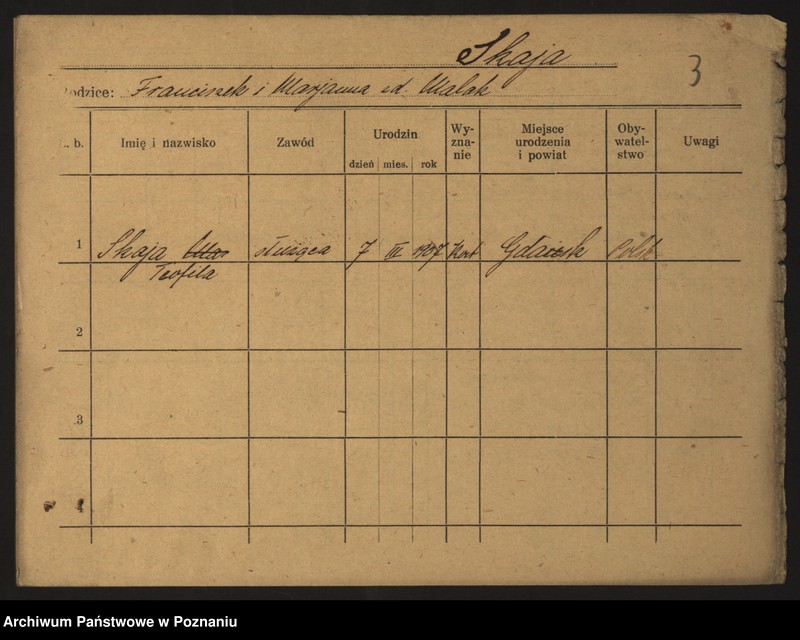 Skaja
3
odzice: Franciszek i Marjanna zd. Malak
. b. Imię i nazwisko Zawód Urodzin dzień mies. rok Wy-zna-nie Miejsce urodzenia i powiat Oby-watel-stwo Uwagi
1 Skaja służąca 7 III 1907 Gdańsk Polsk
Teofila
2
3
4
Archiwum Państwowe w Poznaniu